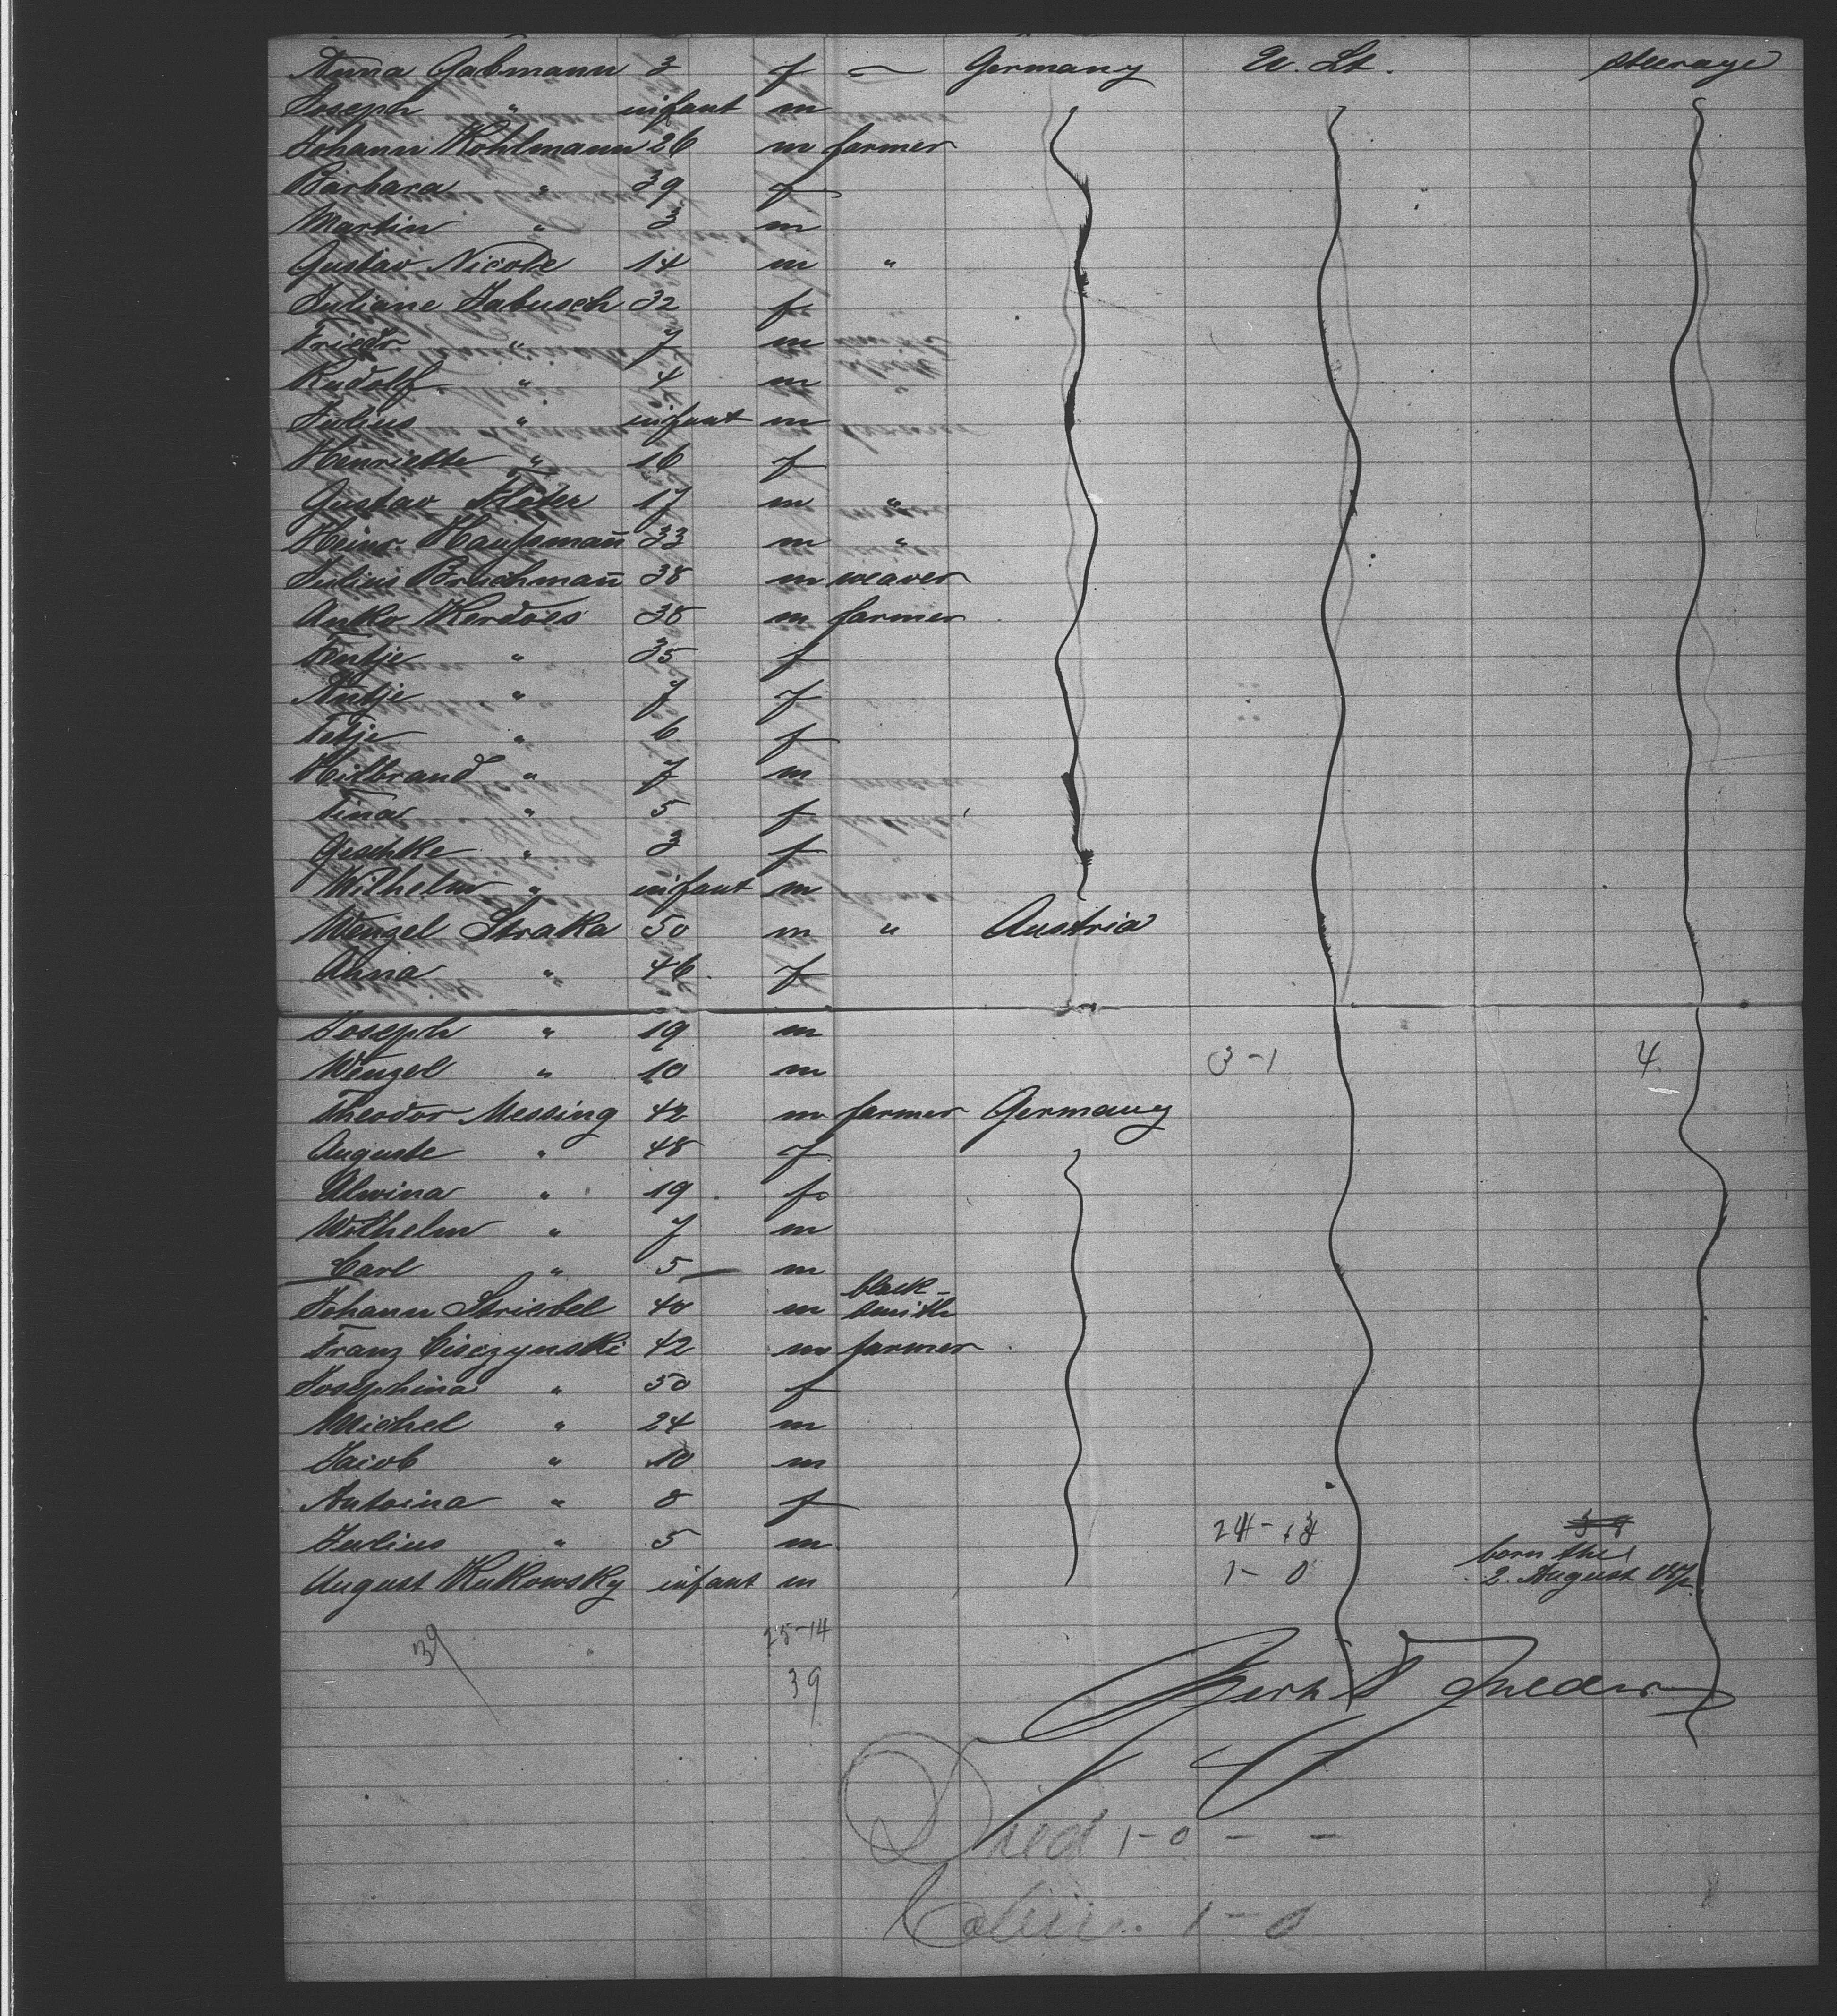 Anna Gabmann 3 f — Germany U. St. steerage
Joseph " infant m
Johann Kohlmann 26 m farmer
Barbara " 39 f
Martin " 3 m
Gustav Nicole 14 m "
Juliane Jabusch 32 f
Friedr. " 7 m
Rudolf " 4 m
Julius " infant m
Henriette " 16 f
Gustav 17 m "
Heinr. Haussmañ 33 m "
Julius Bruchmañ 38 m weaver
Anko Kerdoes 38 m farmer
Fentje " 35 f
Antje " 7 f
Fetje " 6 f
Hilbrand " 7 m
Tina " 5 f
Geschke " 3 f
Wilhelm " infant m
Wenzel Straka 50 m " Austria
Anna " 46 f
Joseph " 19 m
Wenzel " 10 m 3-1 4
Theodor Messing 42 m farmer Germany
Auguste " 48 f
Alwina " 19 f
Wilhelm " 7 m
Carl " 5 — m
Johann Striebel 40 m black-
smith
Franz Cisczynski 42 m farmer
Josephina " 50 f
Michel " 24 m
Jacob " 10 m
Antoina " 8 f
Julius " 5 m 24-
born the
August Kukowsky infant m 1-0 2. August
39 25-14
39
Died 1-0 - -
1-0